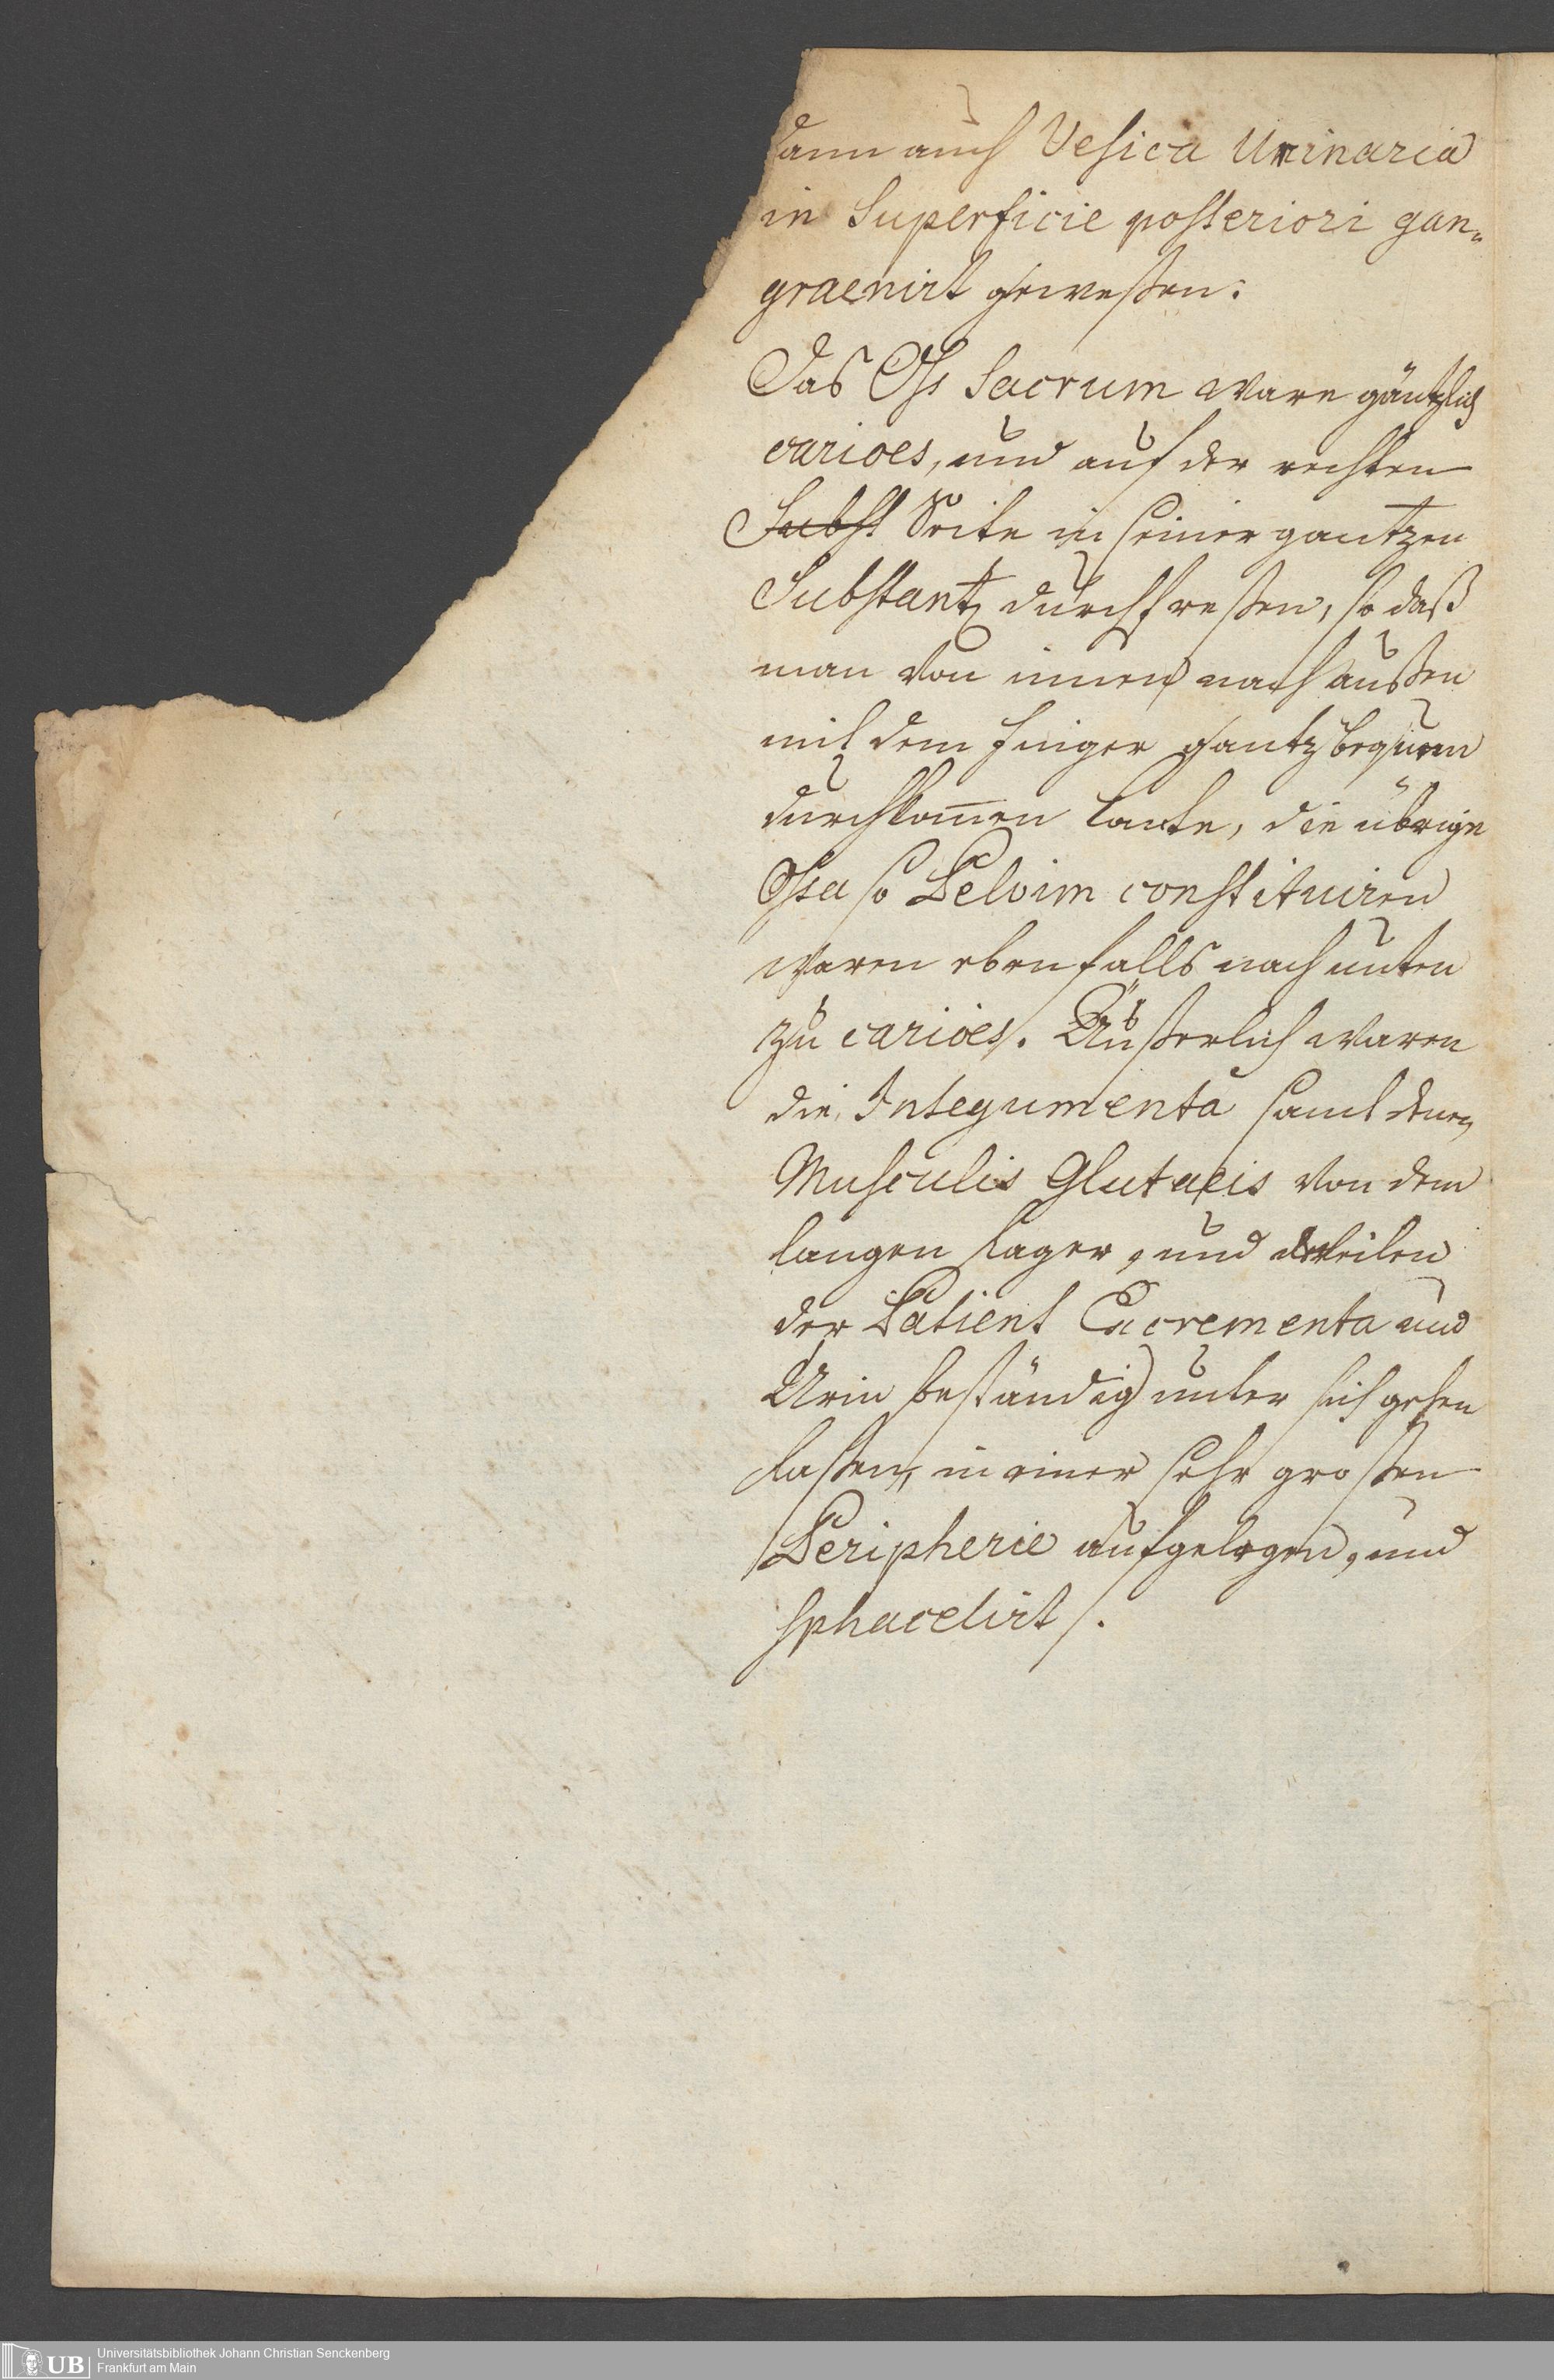 dann auch Vesica Urinaria
in Superficie posteriori gan-
graenirt gewesßen.
Das Oss Sacrum ware gäntzlich
carioes, und auf der rechten
Subst Seite in seiner gantzen
Substantz durchfreßen, so daß
man von innen nach außen
mit dem Finger gantz bequem
durchkom̅en konte, die übrige
Ossa so Pelvim constituiren
waren ebenfalls nach unten
zu carioes. Äußerlich waren
die Integumenta samt denen
Musculis Glutaeis von dem
langen Lager, und weilen
der Patient Excrementa und
Urin beständig unter sich gehen
laßen, in einer sehr großen
Peripherie aufgelegen, und
sphacelirt.
Universitätsbibliothek Johann Christian Senckenberg
Frankfurt am Main
UB